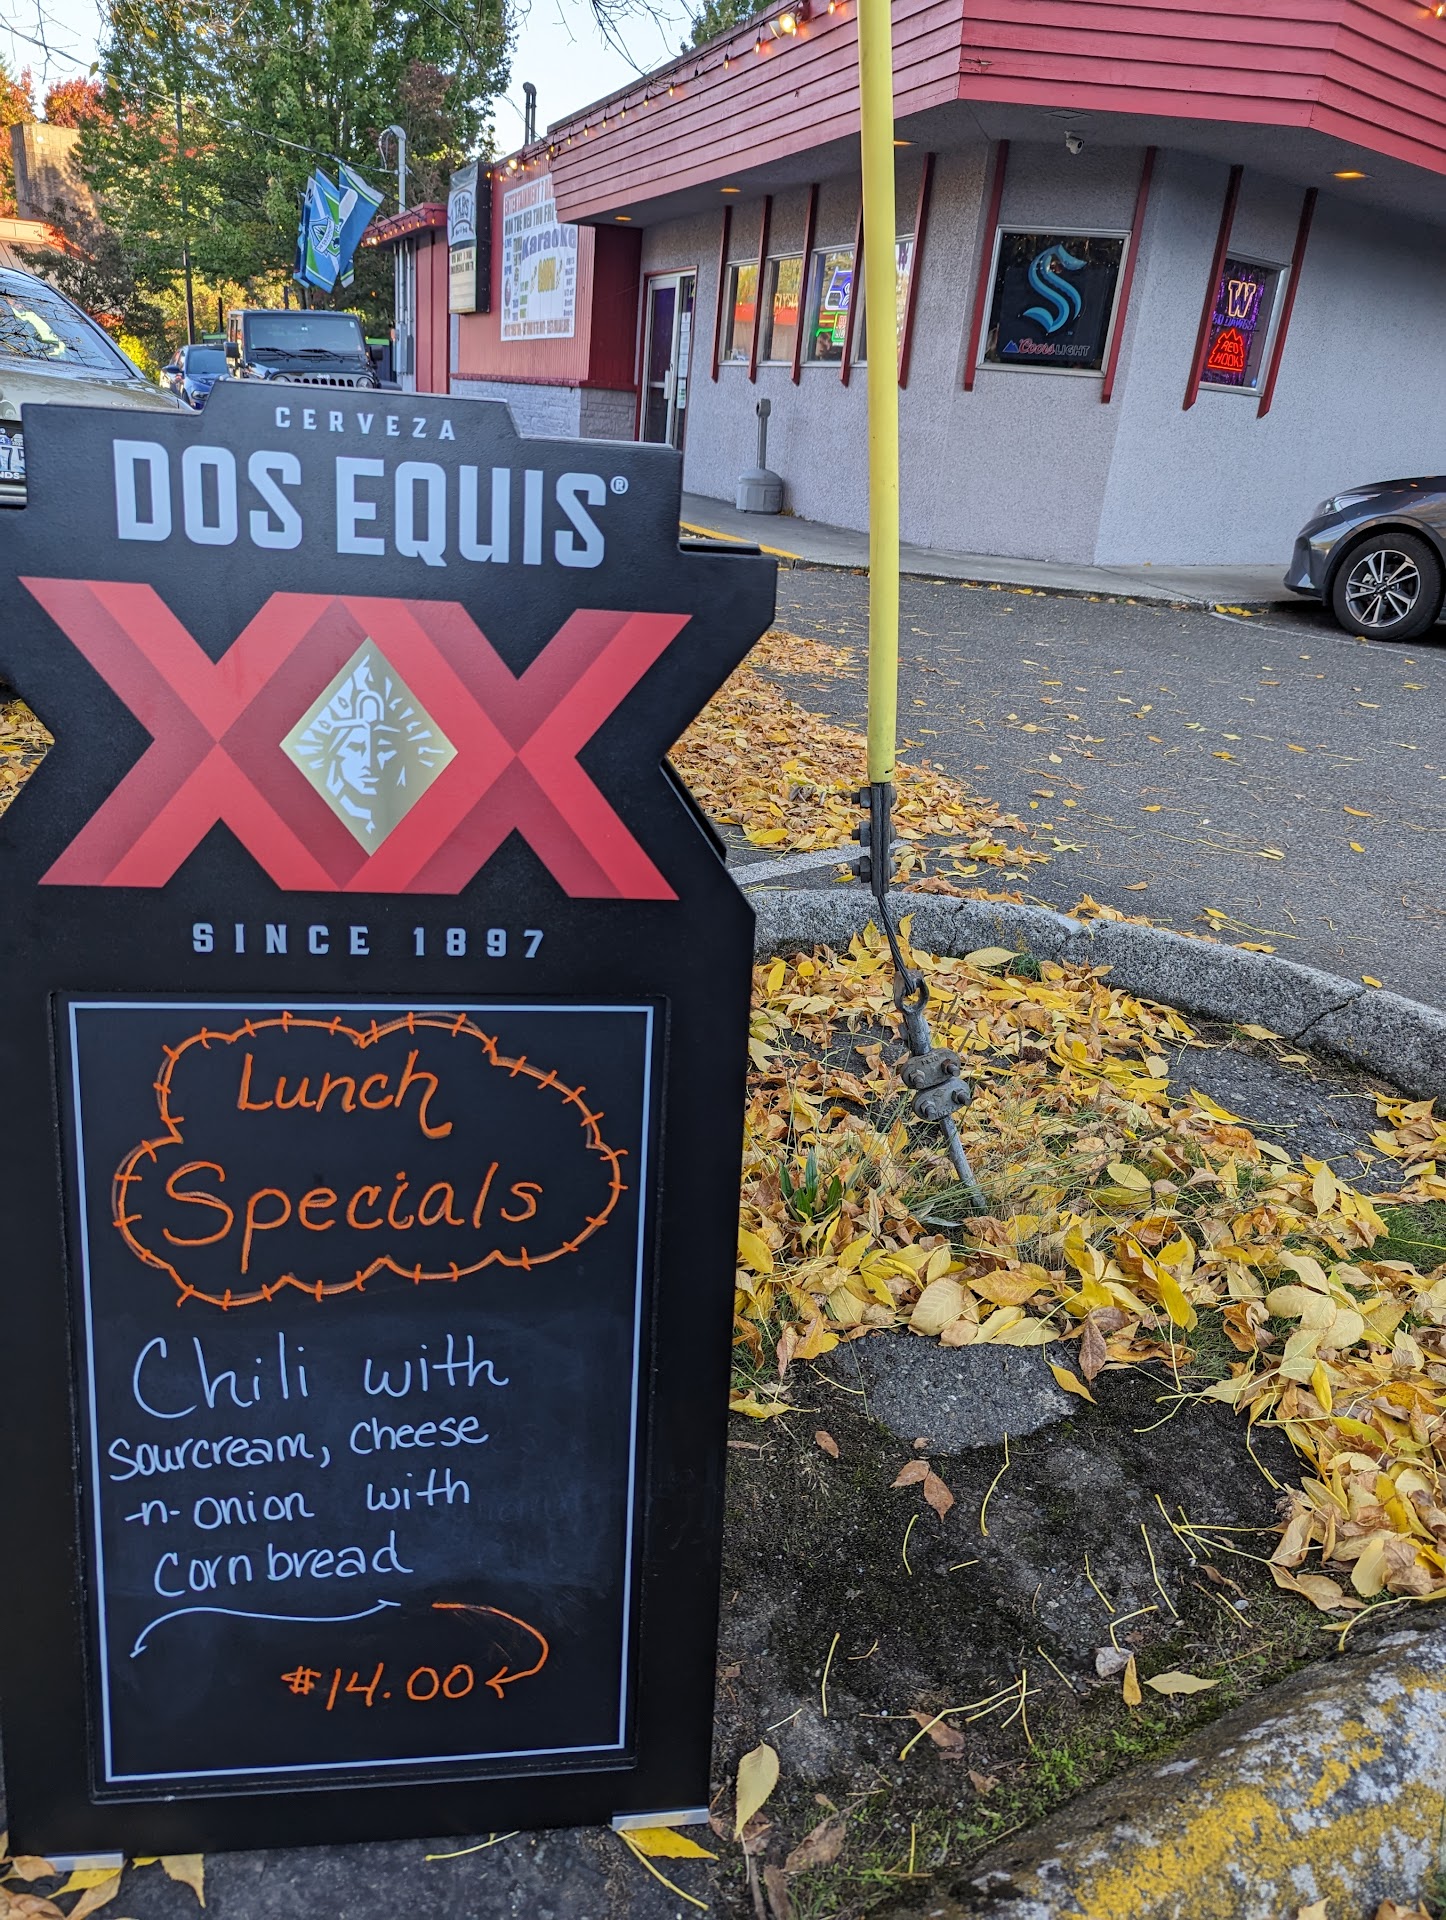 CERVEZA
DOS EQUIS®
XX
SINCE 1897
Lunch
Specials
Chili with
sourcream, cheese
-n- onion with
Corn bread
$14.00
Karaoke
Coors LIGHT
W
RED
HOOK